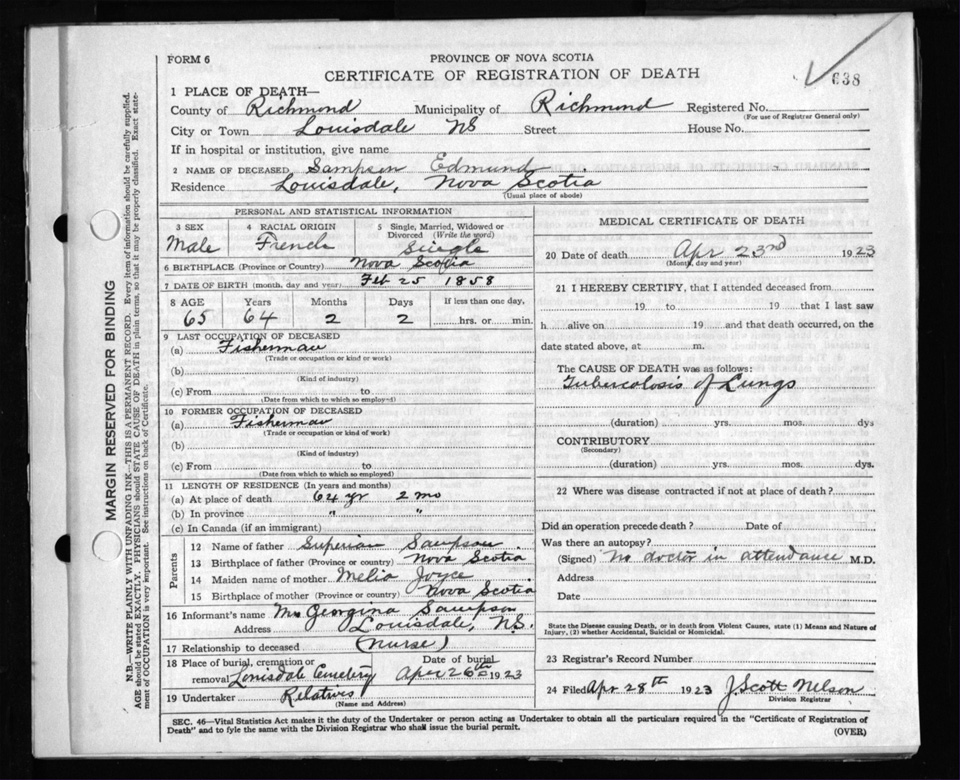 FORM 6
PROVINCE OF NOVA SCOTIA
CERTIFICATE OF REGISTRATION OF DEATH
638
1 PLACE OF DEATH—
County of Richmond Municipality of Richmond Registered No.
(For use of Registrar General only)
City or Town Louisdale NS Street House No.
If in hospital or institution, give name
2 NAME OF DECEASED Sampson Edmund
Residence Louisdale, Nova Scotia
(Usual place of abode)
PERSONAL AND STATISTICAL INFORMATION
3 SEX
Male
4 RACIAL ORIGIN
French
5 Single, Married, Widowed or
Divorced (Write the word)
Single
6 BIRTHPLACE (Province or Country) Nova Scotia
7 DATE OF BIRTH (month, day and year) Feb 25 1858
8 AGE Years Months Days If less than one day,
65 64 2 2 hrs. or min.
9 LAST OCCUPATION OF DECEASED
(a) Fisherman
(Trade or occupation or kind or work)
(b)
(Kind of industry)
(c) From to
(Date from which to which so employed)
10 FORMER OCCUPATION OF DECEASED
(a) Fisherman
(Trade or occupation or kind of work)
(b)
(Kind of industry)
(c) From to
(Date from which to which so employed)
11 LENGTH OF RESIDENCE (In years and months)
(a) At place of death 64 yr 2 mo
(b) In province " "
(c) In Canada (if an immigrant)
Parents
12 Name of father Superian Sampson
13 Birthplace of father (Province or country) Nova Scotia
14 Maiden name of mother Melia Joyce
15 Birthplace of mother (Province or country) Nova Scotia
16 Informant's name Mrs Georgina Sampson
Address Louisdale, N.S.
17 Relationship to deceased (Nurse)
18 Place of burial, cremation or Date of burial
removal Louisdale Cemetery Apr 26th 1923
19 Undertaker Relatives
(Name and Address)
MEDICAL CERTIFICATE OF DEATH
20 Date of death Apr 23rd 1923
(Month, day and year)
21 I HEREBY CERTIFY, that I attended deceased from
19 to 19 that I last saw
h alive on 19 and that death occurred, on the
date stated above, at m.
The CAUSE OF DEATH was as follows:
Tubercolosis of Lungs
(duration) yrs. mos. dys
CONTRIBUTORY
(Secondary)
(duration) yrs. mos. dys.
22 Where was disease contracted if not at place of death?
Did an operation precede death? Date of
Was there an autopsy?
(Signed) No doctor in attendance M.D.
Address
Date
State the Disease causing Death, or in death from Violent Causes, state (1) Means and Nature of
Injury, (2) whether Accidental, Suicidal or Homicidal.
23 Registrar's Record Number
24 Filed Apr 28th 1923 J Scott Nelson
Division Registrar
SEC. 46—Vital Statistics Act makes it the duty of the Undertaker or person acting as Undertaker to obtain all the particulars required in the "Certificate of Registration of
Death" and to fyle the same with the Division Registrar who shall issue the burial permit.
(OVER)
MARGIN RESERVED FOR BINDING
N.B.—WRITE PLAINLY WITH UNFADING INK—THIS IS A PERMANENT RECORD. Every item of information should be carefully supplied.
AGE should be stated EXACTLY. PHYSICIANS should STATE CAUSE OF DEATH in plain terms, so that it may be properly classified. Exact state-
ment of OCCUPATION is very important. See instructions on back of Certificate.